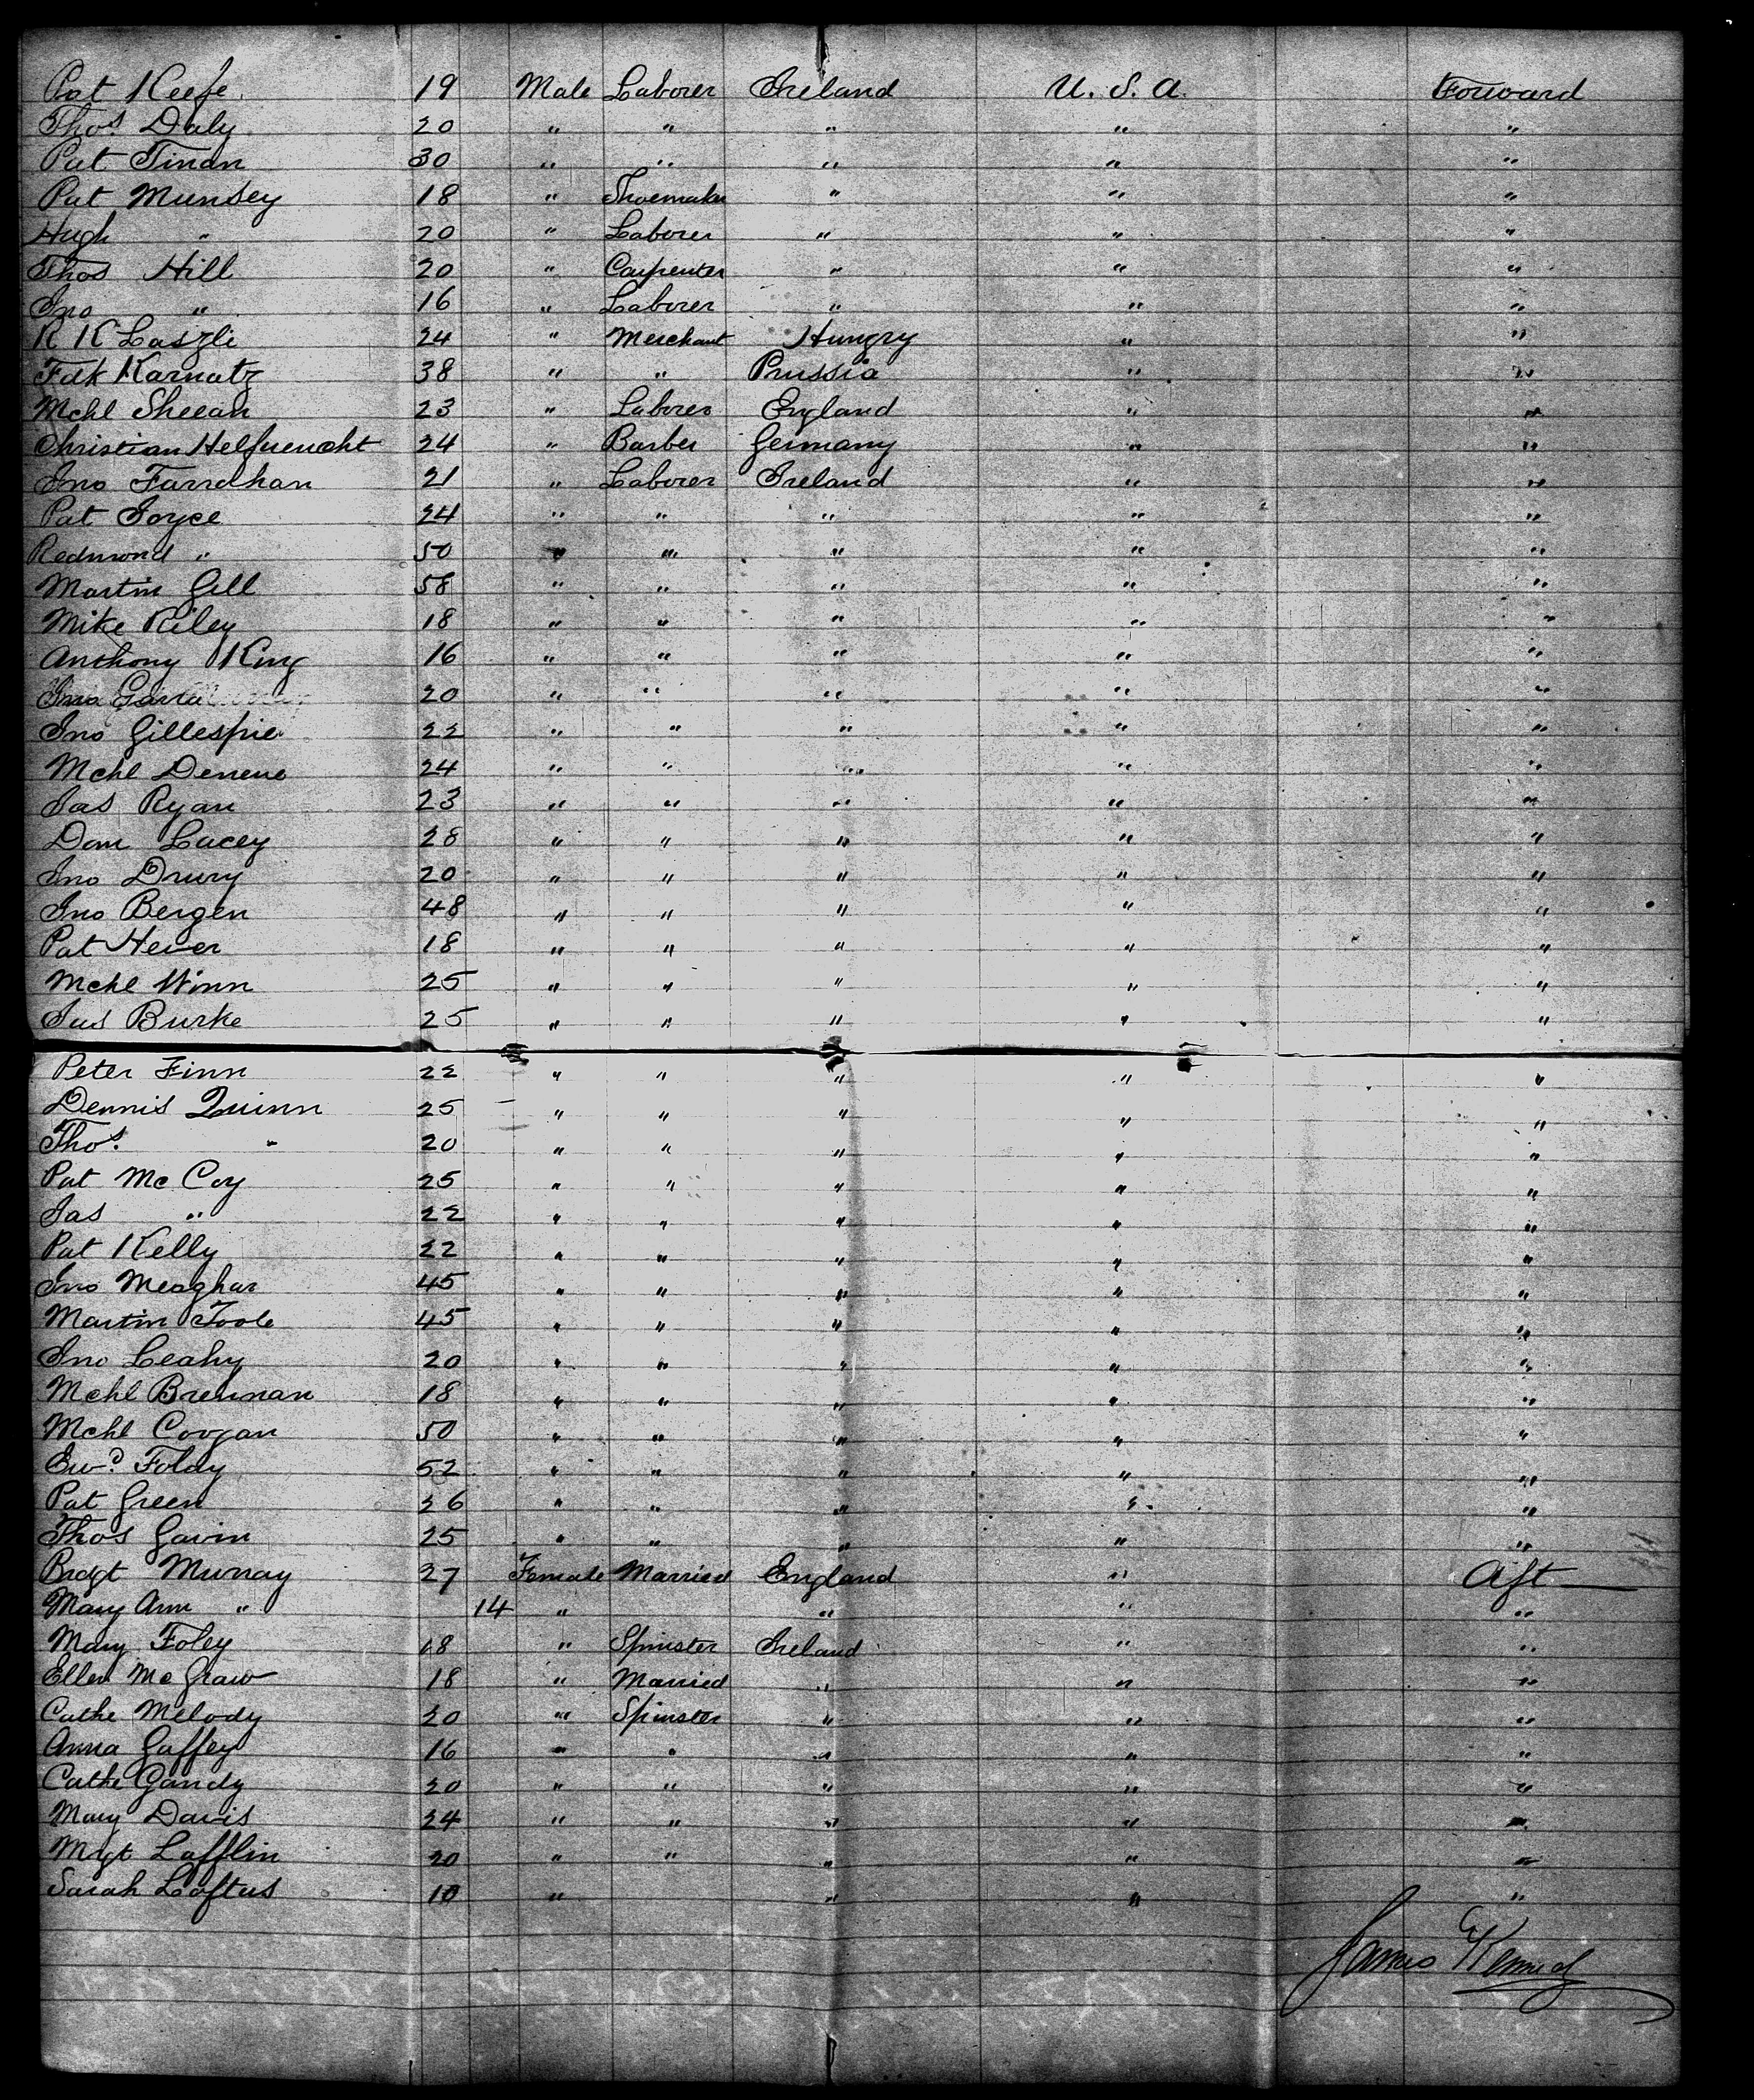 Pat Keefe 19 Male Laborer Ireland U. S. A. Forward
Thos Daly 20 " " " " "
Pat Tinan 30 " " " " "
Pat Munsey 18 " Shoemaker " " "
Hugh " 20 " Laborer " " "
Thos Hill 20 " Carpenter " " "
Jno " 16 " Laborer " " "
R K Laszli 24 " Merchant Hungry " "
Fdk Karnatz 38 " " Prussia " "
Mchl Sheean 23 " Laborer England " "
Christian 24 " Barber Germany " "
Jno 21 " Laborer Ireland " "
Pat Joyce 24 " " " " "
Redmond " 50 " " " " "
Martin Gill 58 " " " " "
Mike Riley 18 " " " " "
Anthony King 16 " " " " "
Jno 20 " " " " "
Jno Gillespie 22 " " " " "
Mchl Denene 24 " " " " "
Jas Ryan 23 " " " " "
Dom Lacey 28 " " " " "
Jno Drury 20 " " " " "
Jno Bergen 48 " " " " "
Pat Hever 18 " " " " "
Mchl Winn 25 " " " " "
Jas Burke 25 " " " " "
Peter Finn 22 " " " " "
Dennis Quinn 25 " " " " "
Thos " 20 " " " " "
Pat McCoy 25 " " " " "
Jas " 22 " " " " "
Pat Kelly 22 " " " " "
Jno Meaghar 45 " " " " "
Martin Toole 45 " " " " "
Jno Leahy 20 " " " " "
Mchl Brennan 18 " " " " "
Mchl Coogan 50 " " " " "
Ewd Foley 52 " " " " "
Pat Green 26 " " " " "
Thos Gavin 25 " " " " "
Bridgt Murray 27 Female Married England " Aft
Mary Ann " 14 " " " "
Mary Foley 18 " Spinster Ireland " "
Ellen McGraw 18 " Married " " "
Cathe Melody 20 " Spinster " " "
Anna Gaffey 16 " " " " "
Cathe Gandy 20 " " " " "
Mary Davis 24 " " " " "
Mgt Lafflin 20 " " " " "
Sarah Loftus 10 " " " "
James Kennedy